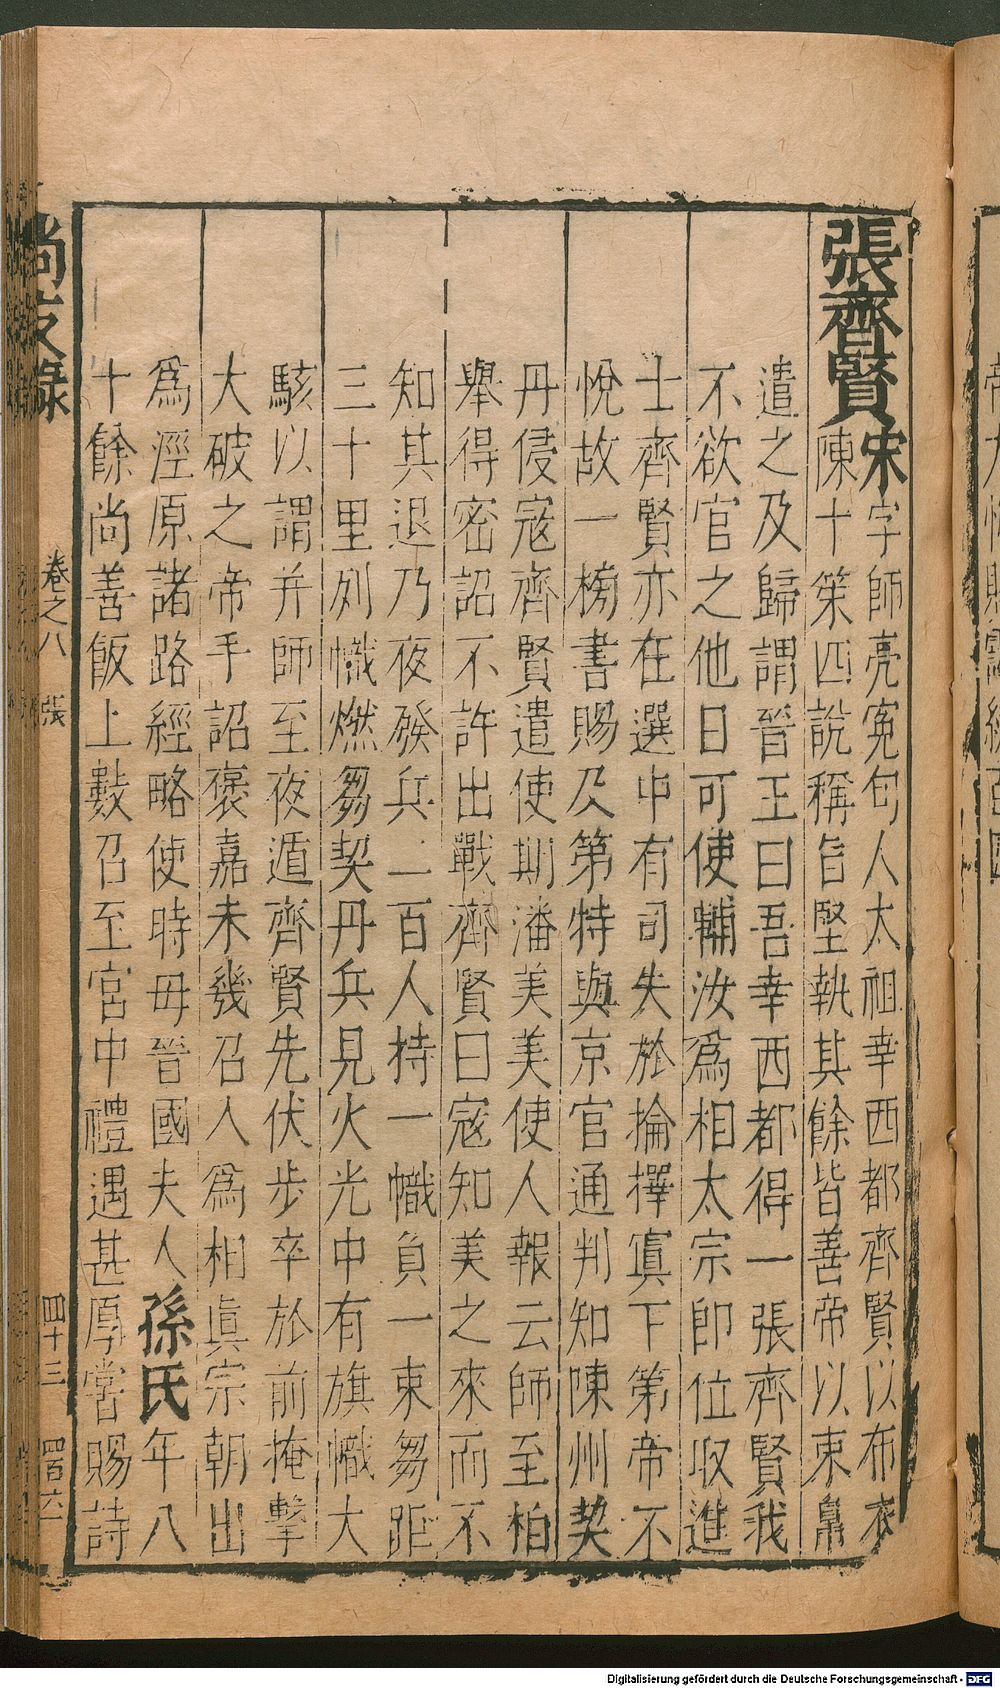 張齊賢宋字師亮冤句人太祖幸西都齊賢以布衣
陳十策四說稱旨堅執其餘皆善帝以束帛
遣之及歸謂晉王曰吾幸西都得一張齊賢我
不欲官之他日可使輔汝爲相太宗卽位收進
士齊賢亦在選中有司失於掄擇寘下第帝不
悅故一榜書賜及第特與京官通判知陳州契
丹侵寇齊賢遣使期潘美美使人報云師至柏
舉得密詔不許出戰齊賢曰寇知美之來而不
知其退乃夜發兵二百人持一幟負一束芻距
三十里列幟燃芻契丹兵見火光中有旗幟大
駭以謂并師至夜遁齊賢先伏步卒於前掩擊
大破之帝手詔褒嘉未幾召人爲相眞宗朝出
爲涇原諸路經略使時毋晉國夫人孫氏年八
十餘尚善飯上數召至宮中禮遇甚厚嘗賜詩
尚友錄 卷之八 張 四十三 四百六
Digitalisierung gefördert durch die Deutsche Forschungsgemeinschaft - DFG